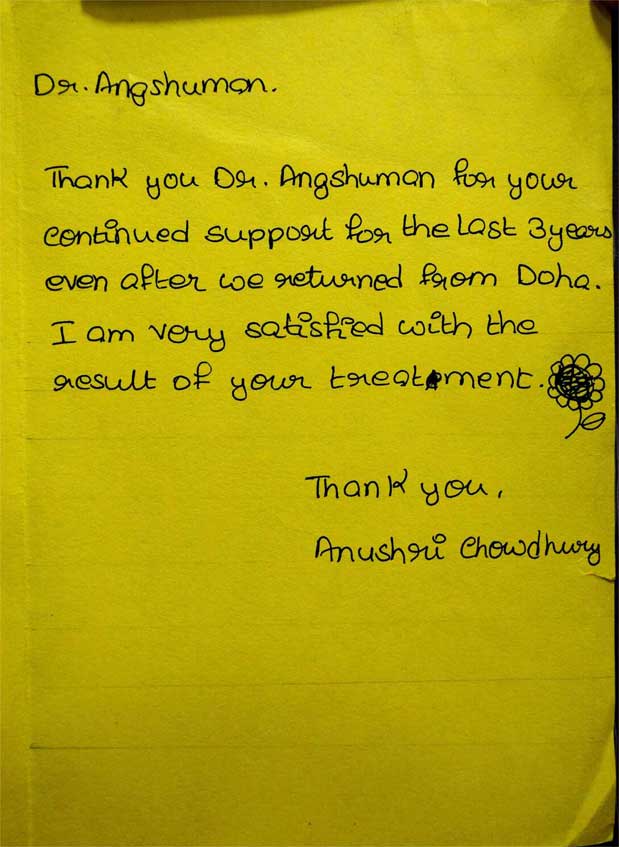 Dr. Angshuman.
Thank you Dr. Angshuman for your
continued support for the last 3 years
even after we returned from Doha.
I am very satisfied with the
result of your treatment.
Thank you,
Anushri Chowdhury